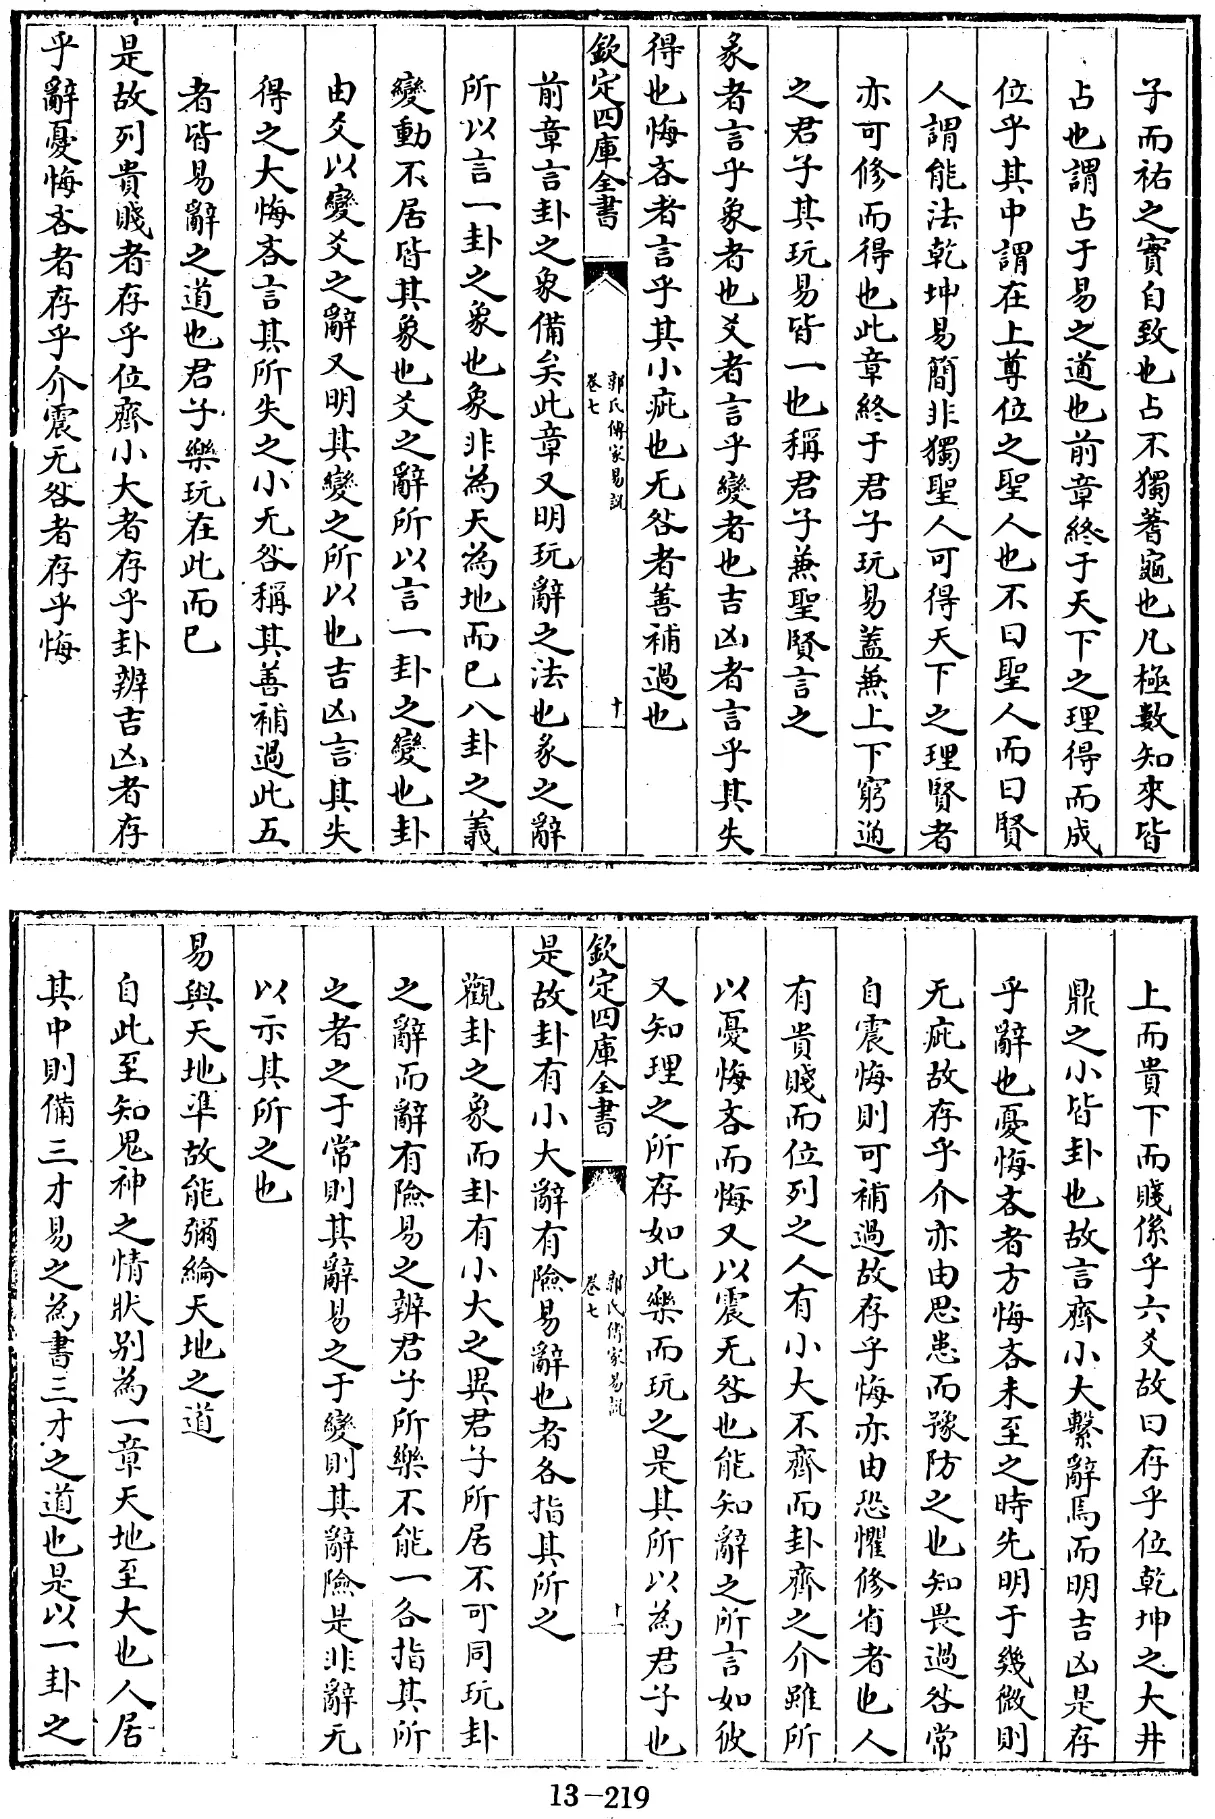 子而祐之實自致也占不獨蓍龜也凡極數知來皆
占也謂占于易之道也前章終于天下之理得而成
位乎其中謂在上尊位之聖人也不曰聖人而曰賢
人謂能法乾坤易簡非獨聖人可得天下之理賢者
亦可修而得也此章終于君子玩易蓋兼上下窮通
之君子其玩易皆一也稱君子兼聖賢言之
彖者言乎象者也爻者言乎變者也吉凶者言乎其失
得也悔吝者言乎其小疵也无咎者善補過也
欽定四庫全書
郭氏傳家易說
卷七
十
前章言卦之象備矣此章又明玩辭之法也彖之辭
所以言一卦之象也象非為天為地而已八卦之義
變動不居皆其象也爻之辭所以言一卦之變也卦
由爻以變爻之辭又明其變之所以也吉凶言其失
得之大悔吝言其所失之小无咎稱其善補過此五
者皆易辭之道也君子樂玩在此而已
是故列貴賤者存乎位齊小大者存乎卦辨吉凶者存
乎辭憂悔吝者存乎介震无咎者存乎悔
上而貴下而賤係乎六爻故曰存乎位乾坤之大井
鼎之小皆卦也故言齊小大繫辭焉而明吉凶是存
乎辭也憂悔吝者方悔吝未至之時先明于幾微則
无疵故存乎介亦由思患而豫防之也知畏過咎常
自震悔則可補過故存乎悔亦由恐懼修省者也人
有貴賤而位列之人有小大不齊而卦齊之介雖所
以憂悔吝而悔又以震无咎也能知辭之所言如彼
又知理之所存如此樂而玩之是其所以為君子也
欽定四庫全書
郭氏傳家易說
卷七
十一
是故卦有小大辭有險易辭也者各指其所之
觀卦之象而卦有小大之異君子所居不可同玩卦
之辭而辭有險易之辨君子所樂不能一各指其所
之者之于常則其辭易之于變則其辭險是非辭无
以示其所之也
易與天地準故能彌綸天地之道
自此至知鬼神之情狀別為一章天地至大也人居
其中則備三才易之為書三才之道也是以一卦之
13-219